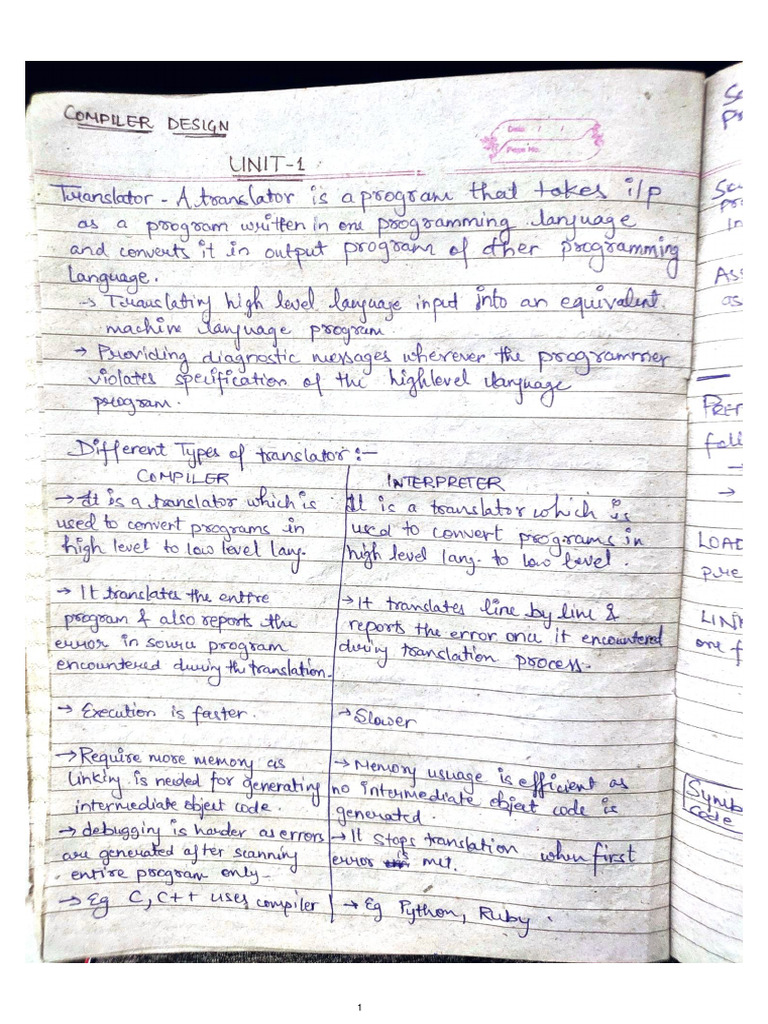 COMPILER DESIGN
Date / /
Page No.
UNIT-1
Translator - A translator is a program that takes i/p
as a program written in one programming language
and converts it in output program of other programming
language.
→ Translating high level language input into an equivalent
machine language program.
→ Providing diagnostic messages wherever the programmer
violates specification of the highlevel language
program.
Different Types of translator :-
COMPILER
→ It is a translator which is
used to convert programs in
high level to low level lang.
→ It translates the entire
program & also reports the
error in source program
encountered during the translation.
→ Execution is faster.
→ Require more memory as
linking is needed for generating
intermediate object code.
→ debugging is harder as errors
are generated after scanning
entire program only.
→ Eg C, C++ uses compiler
INTERPRETER
It is a translator which is
used to convert programs in
high level lang. to low level.
→ It translates line by line &
reports the error once it encountered
during translation process.
→ Slower
→ Memory usuage is efficient as
no intermediate object code is
generated.
→ It stops translation when first
error is met.
→ Eg Python, Ruby.
in
Ass
as
PRE
foll
→
→
LOAD
pre
LIN
one f
Symb
code
1